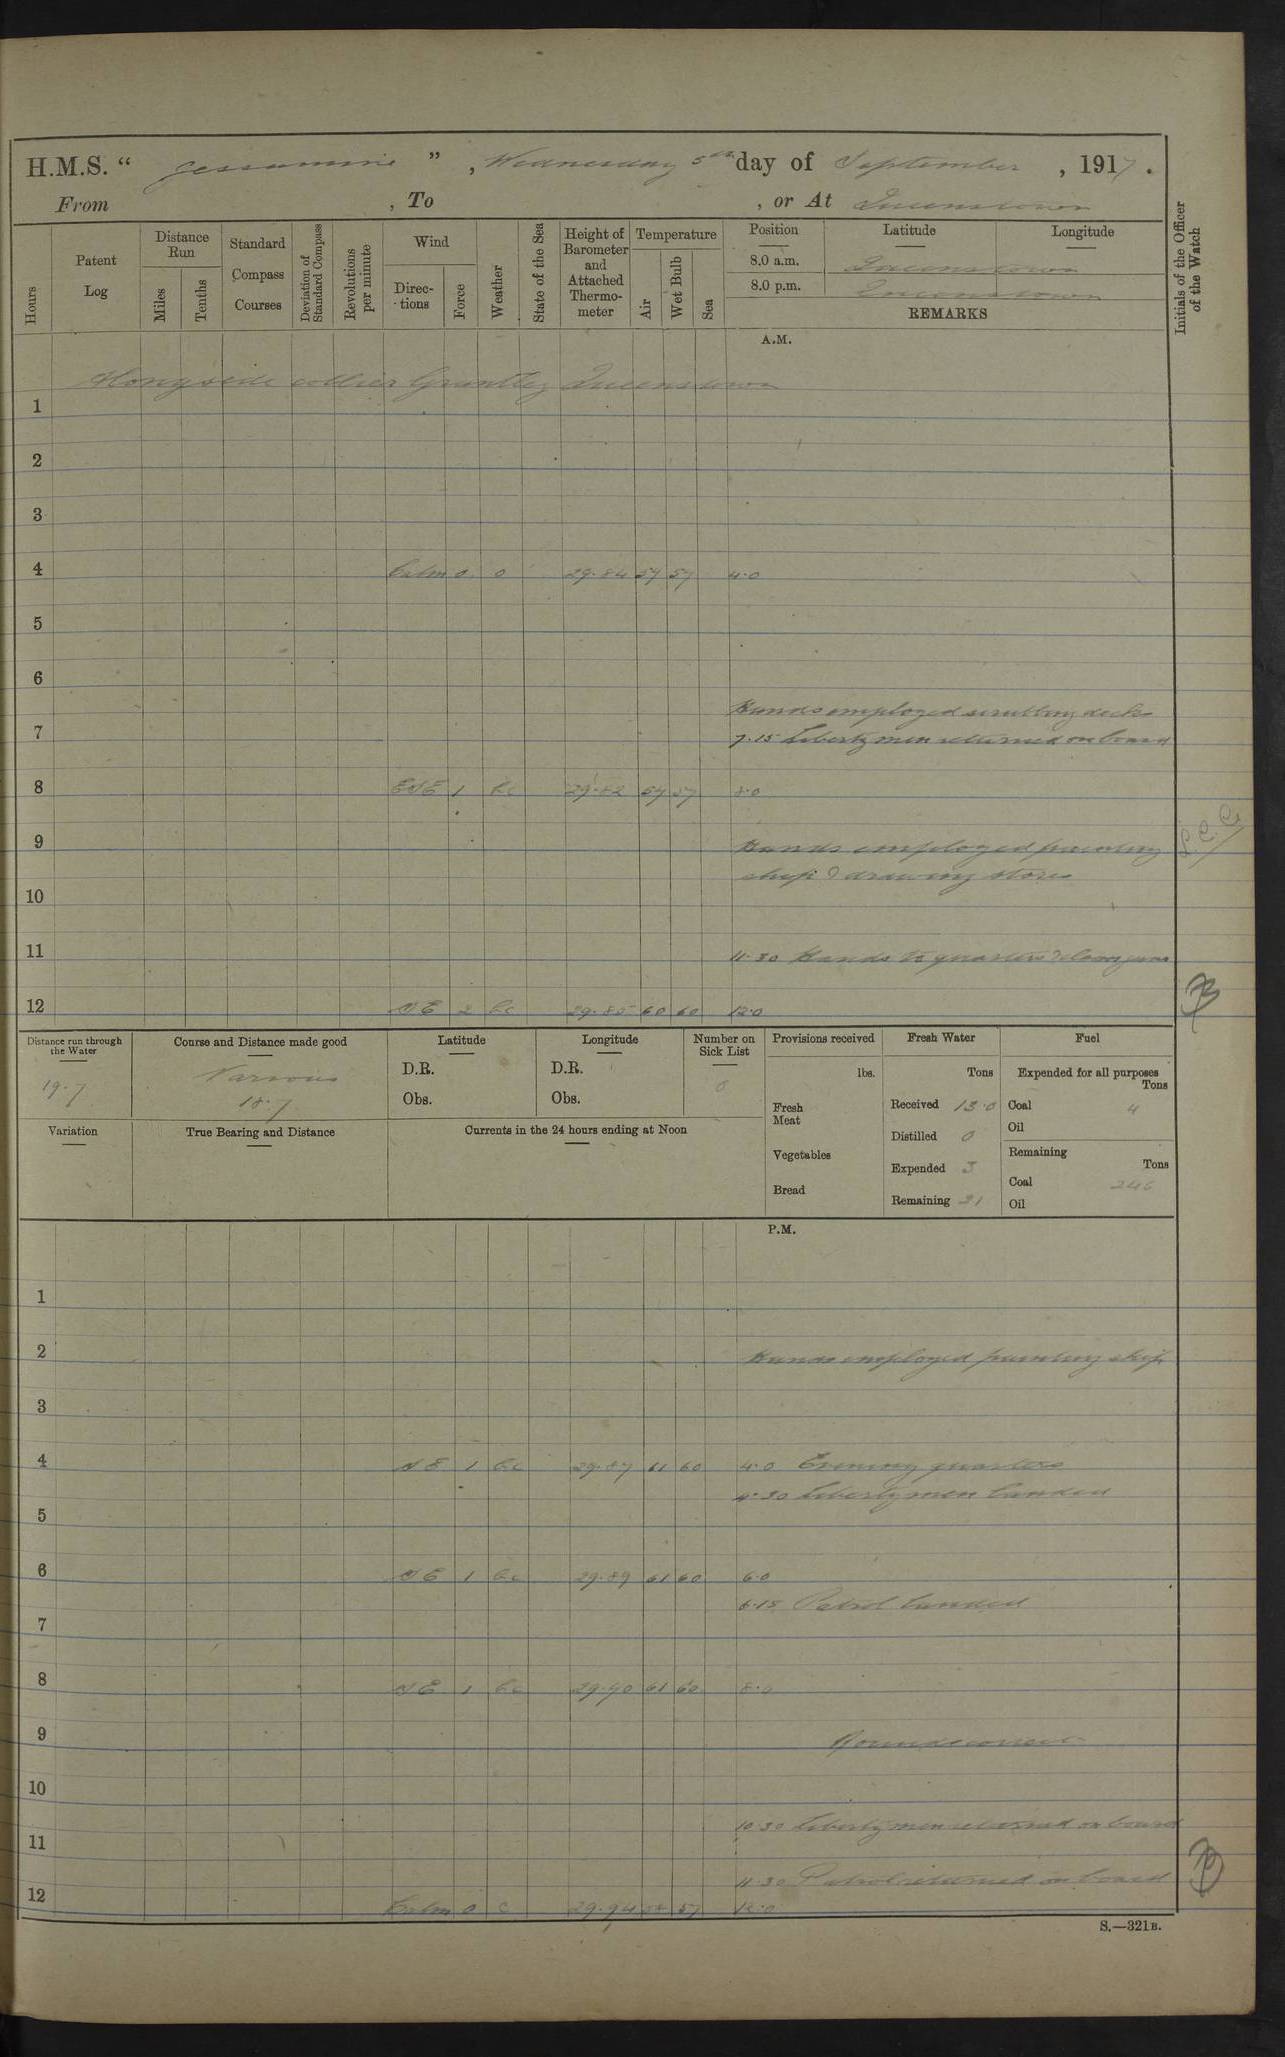 H.M.S. “ Jessamine ” , Wednesday 5th day of September , 1917 .
From , To , or At Queenstown
Hours
Patent Log
Distance Run
Miles
Tenths
Standard Compass Courses
Deviation of Standard Compass
Revolutions per minute
Wind
Direc-tions
Force
Weather
State of the Sea
Height of Barometer and Attached Thermo-meter
Temperature
Air
Wet Bulb
Sea
Position
Latitude
Longitude
8.0 a.m. Queenstown
8.0 p.m. Queenstown
REMARKS
Initials of the Officer of the Watch
A.M.
Alongside collier Grantley Queenstown
1
2
3
4 Calm 0 0 29.84 57 57 4.0
5
6
Hands employed scrubbing decks
7 7.15 Liberty men returned on board
8 ENE 1 bc 29.82 57 57 8.0
9 Hands employed painting
ship & drawing stores
10
11 11.30 Hands to quarters clean guns
12 NE 2 bc 29.85 60 60 12.0
Distance run through the Water
19.7
Course and Distance made good
Various
18.7
Latitude
D.R.
Obs.
Longitude
D.R.
Obs.
Number on Sick List
0
Provisions received
lbs.
Fresh Meat
Vegetables
Bread
Fresh Water
Tons
Received 13.0
Distilled 0
Expended 3
Remaining 31
Fuel
Expended for all purposes
Tons
Coal 4
Oil
Remaining
Tons
Coal 246
Oil
Variation
True Bearing and Distance
Currents in the 24 hours ending at Noon
P.M.
1
2 Hands employed painting ship
3
4 NE 1 bc 29.87 61 60 4.0 Evening quarters
4.30 Liberty men landed
5
6 NE 1 bc 29.89 61 60 6.0
6.15 Patrol landed
7
8 NE 1 bc 29.90 61 60 8.0
9 Rounds correct
10
10.30 Liberty men returned on board
11
11.30 Patrol returned on board
12 Calm 0 c 29.94 58 57 12.0
S.—321B.